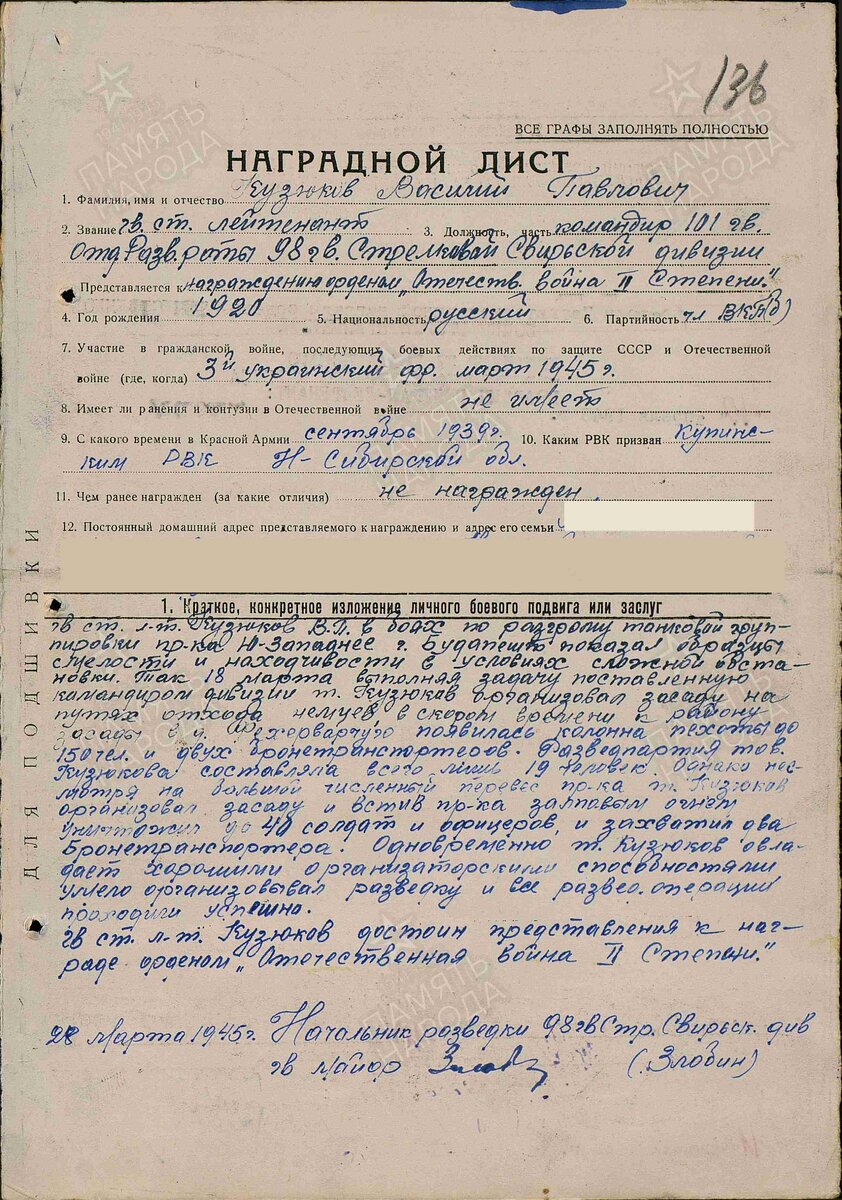 136
ВСЕ ГРАФЫ ЗАПОЛНЯТЬ ПОЛНОСТЬЮ
НАГРАДНОЙ ЛИСТ
1. Фамилия, имя и отчество Кузюков Василий Павлович
2. Звание гв. ст. лейтенант 3. Должность, часть командир 101 гв.
Отд. Разв. роты 98 гв. Стрелковой Свирьской дивизии
Представляется к награждению орденом „Отечеств. война II Степени."
4. Год рождения 1920 5. Национальность русский 6. Партийность чл ВКП(б)
7. Участие в гражданской войне, последующих боевых действиях по защите СССР и Отечественной
войне (где, когда) 3й украинский фр. март 1945 г.
8. Имеет ли ранения и контузии в Отечественной войне не имеет
9. С какого времени в Красной Армии сентябрь 1939г. 10. Каким РВК призван Купинс-
ким РВК Н-Сибирской обл.
11. Чем ранее награжден (за какие отличия) не награжден.
12. Постоянный домашний адрес представляемого к награждению и адрес его семьи
1. Краткое, конкретное изложение личного боевого подвига или заслуг
гв ст. л-т. Кузюков В.П. в боях по разгрому танковой груп-
пировки пр-ка Ю-Западнее г. Будапешт показал образцы
смелости и находчивости в условиях сложной обста-
новки. Так 18 марта выполняя задачу поставленную
командиром дивизии т. Кузюков организовал засаду на
путях отхода немцев в скором времени к району
засады в д. появилась колонна пехоты до
150 чел. и двух бронетранспортеров. Разведпартия тов.
Кузюкова составляла всего лишь 19 человек. Однако нес-
мотря на большой численный перевес пр-ка т. Кузюков
организовал засаду и встив пр-ка залповым огнем
уничтожил до 40 солдат и офицеров, и захватил два
бронетранспортера. Одновременно т. Кузюков обла-
дает хорошими организаторскими способностями,
умело организовывал разведку и все развед. операции
проходили успешно.
гв ст. л-т. Кузюков достоин представления к наг-
раде орденом „Отечественная война II Степени."
марта 1945г. Начальник разведки 98 гв Стр. Свирьск. див
гв майор (Злобин)
ДЛЯ ПОДШИВКИ
ПАМЯТЬ НАРОДА